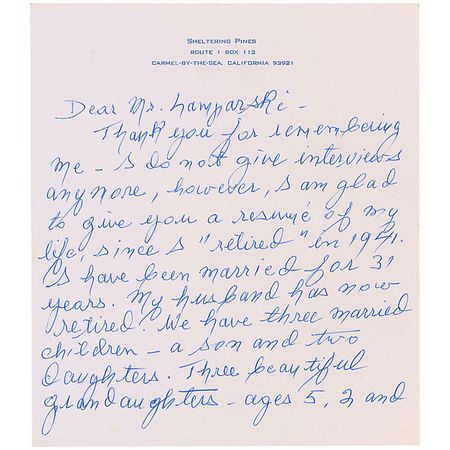 SHELTERING PINES
ROUTE 1 BOX 112
CARMEL-BY-THE-SEA, CALIFORNIA 93921
Dear Mr. Lamparski -
Thank you for remembering
me - I do not give interviews
anymore, however, I am glad
to give you a resumé of my
life, since I "retired" in 1941.
I have been married for 31
years. My husband has now
retired. We have three married
children - a son and two
daughters. Three beautiful
grandaughters - ages 5, 2 and